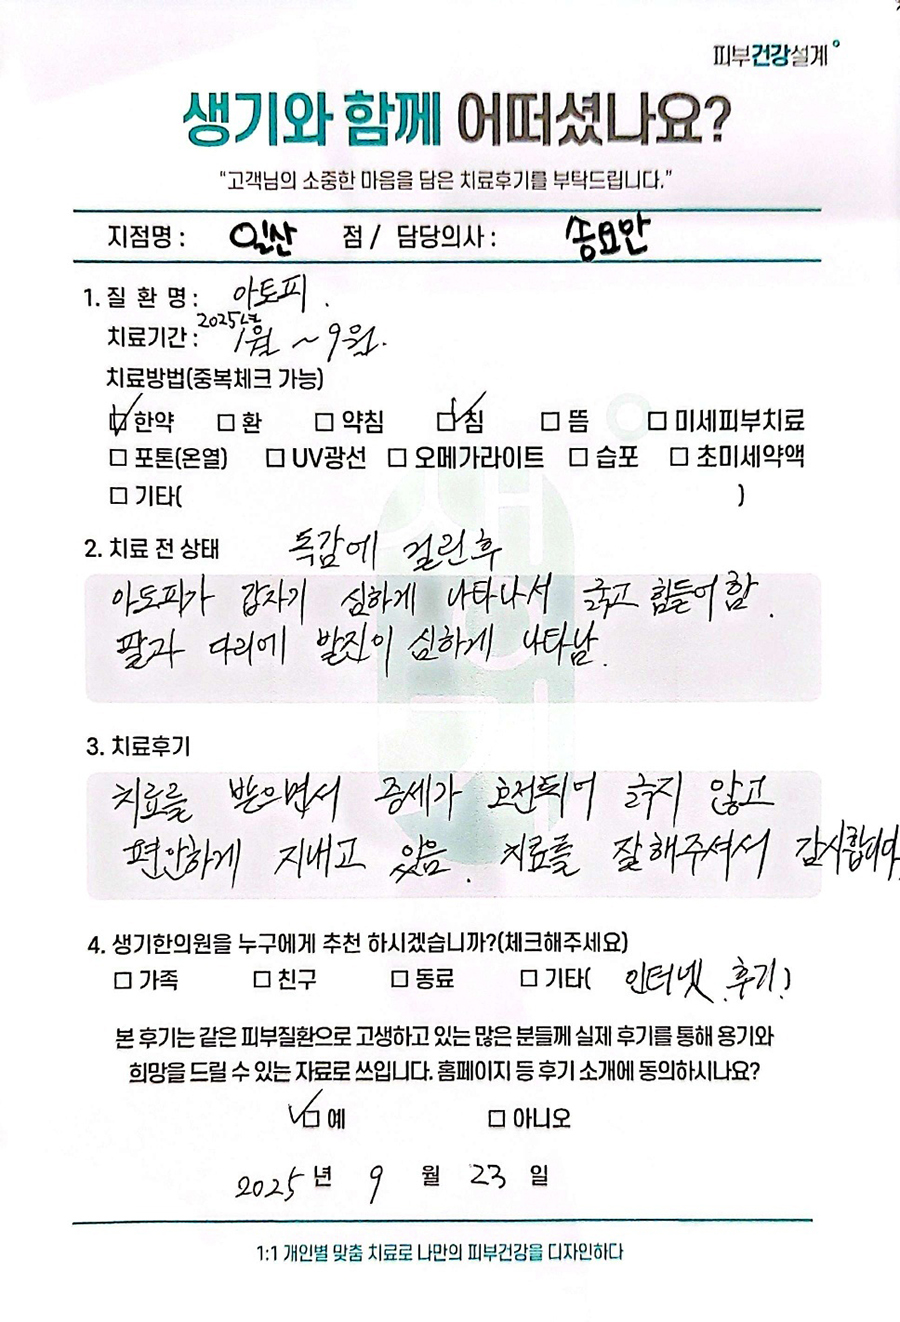 피부건강설계
생기와 함께 어떠셨나요?
“고객님의 소중한 마음을 담은 치료후기를 부탁드립니다.”
지점명 : 일산 점 / 담당의사 : 송요안
1. 질 환 명 : 아토피.
2025년
치료기간 : 1월 ~ 9월.
치료방법(중복체크 가능)
☑ 한약 □ 환 □ 약침 ☑ 침 □ 뜸 □ 미세피부치료
□ 포톤(온열) □ UV광선 □ 오메가라이트 □ 습포 □ 초미세약액
□ 기타( )
2. 치료 전 상태 독감에 걸린후
아토피가 갑자기 심하게 나타나서 긁고 힘들어함.
팔과 다리에 발진이 심하게 나타남.
3. 치료후기
치료를 받으면서 증세가 호전되어 긁지 않고
편안하게 지내고 있음. 치료를 잘해주셔서 감사합니다.
4. 생기한의원을 누구에게 추천 하시겠습니까?(체크해주세요)
□ 가족 □ 친구 □ 동료 □ 기타( 인터넷 후기 )
본 후기는 같은 피부질환으로 고생하고 있는 많은 분들께 실제 후기를 통해 용기와
희망을 드릴 수 있는 자료로 쓰입니다. 홈페이지 등 후기 소개에 동의하시나요?
☑ 예 □ 아니오
2025 년 9 월 23 일
1:1 개인별 맞춤 치료로 나만의 피부건강을 디자인하다